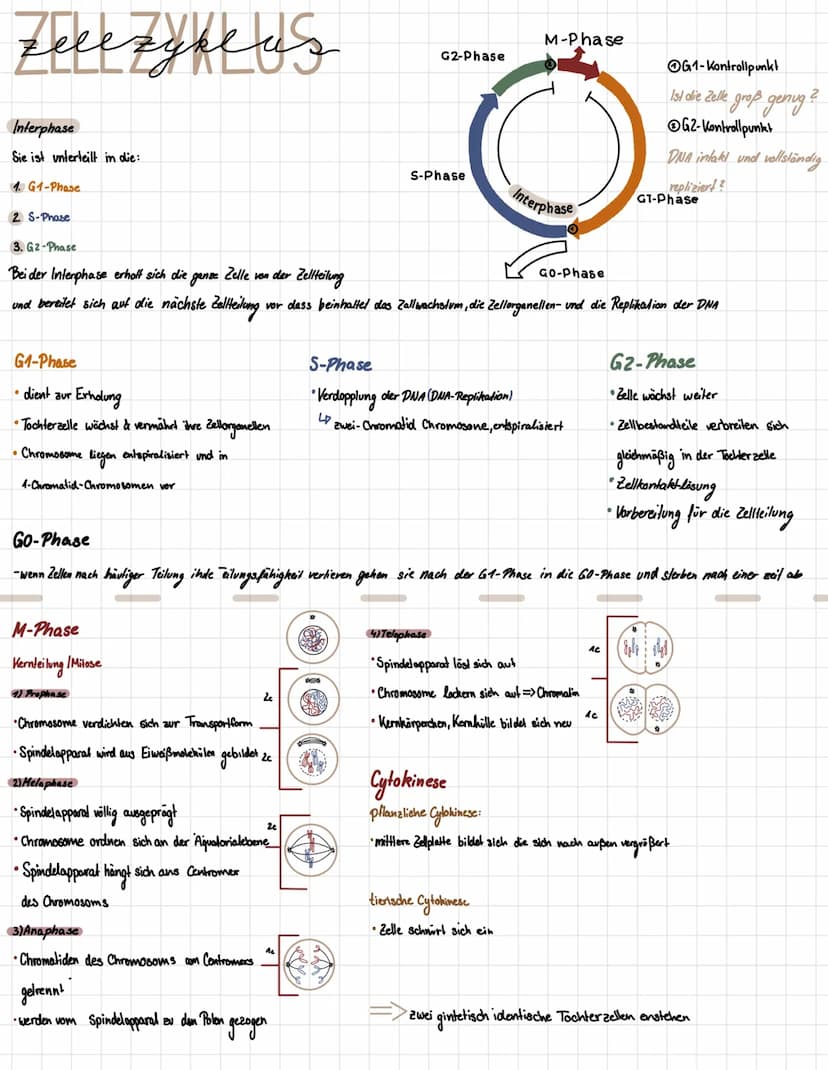 ZELLZYKLUS
zellzyklus
M-Phase
G2-Phase
S-Phase
Interphase
G1-Phase
G0-Phase
①G1-Kontrollpunkt
Ist die Zelle groß genug?
②G2-Kontrollpunkt
DNA intakt und vollständig
repliziert?
Interphase
Sie ist unterteilt in die:
1. G1-Phase
2. S-Phase
3. G2-Phase
Bei der Interphase erholt sich die ganze Zelle von der Zellteilung
und bereitet sich auf die nächste Zellteilung vor dass beinhaltet das Zallwachstum, die Zellorganellen- und die Replikation der DNA
G1-Phase
• dient zur Erholung
• Tochterzelle wächst & vermährt ihre Zellorganellen
• Chromosome liegen entspiralisiert und in
1-Chromatid-Chromosomen vor
S-Phase
• Verdopplung der DNA (DNA-Replikation)
↳ zwei-Chromatid Chromosone, entspiralisiert
G2-Phase
• Zelle wächst weiter
• Zellbestandteile verbreiten sich
gleichmäßig in der Tochterzelle
• Zellkontaktlösung
• Vorbereitung für die Zellteilung
G0-Phase
-wenn Zellen nach häufiger Teilung ihre Teilungsfähigkeit verlieren gehen sie nach der G1-Phase in die G0-Phase und sterben nach einer zeit ab
M-Phase
Kernteilung/Mitose
1) Prophase
2c
• Chromosome verdichten sich zur Transportform
• Spindelapparat wird aus Eiweißmolekülen gebildet 2c
2) Metaphase
• Spindelapparat völlig ausgeprägt
2c
• Chromosome ordnen sich an der Äquatorialebene
• Spindelapparat hängt sich ans Centromer
des Chromosoms
3) Anaphase
1c
• Chromatiden des Chromosoms am Centromers
getrennt
• werden vom Spindelapparat zu den Polen gezogen
4) Telophase
1c
• Spindelapparat löst sich auf
• Chromosome lockern sich auf => Chromatin
1c
• Kernkörperchen, Kernhülle bildet sich neu
Cytokinese
pflanzliche Cytokinese:
• mittlere Zellplatte bildet sich die sich nach außen vergrößert
tierische Cytokinese
• Zelle schnürt sich ein
=> zwei gintetisch identische Tochterzellen enstehen